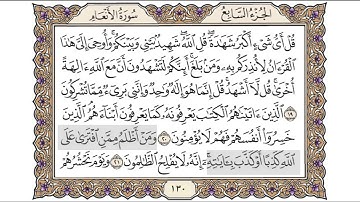 الجزء السابع سورة الأنعام
قُلْ أَىُّ شَىْءٍ أَكْبَرُ شَهَٰدَةً قُلِ ٱللَّهُ شَهِيدٌۢ بَيْنِى وَبَيْنَكُمْ وَأُوحِىَ إِلَىَّ هَٰذَا
ٱلْقُرْءَانُ لِأُنذِرَكُم بِهِۦ وَمَنۢ بَلَغَ أَئِنَّكُمْ لَتَشْهَدُونَ أَنَّ مَعَ ٱللَّهِ ءَالِهَةً
أُخْرَىٰ قُل لَّآ أَشْهَدُ قُلْ إِنَّمَا هُوَ إِلَٰهٌ وَٰحِدٌ وَإِنَّنِى بَرِىٓءٌ مِّمَّا تُشْرِكُونَ
١٩ ٱلَّذِينَ ءَاتَيْنَٰهُمُ ٱلْكِتَٰبَ يَعْرِفُونَهُۥ كَمَا يَعْرِفُونَ أَبْنَآءَهُمُ ٱلَّذِينَ
خَسِرُوٓا۟ أَنفُسَهُمْ فَهُمْ لَا يُؤْمِنُونَ ٢٠ وَمَنْ أَظْلَمُ مِمَّنِ ٱفْتَرَىٰ عَلَى
ٱللَّهِ كَذِبًا أَوْ كَذَّبَ بِـَٔايَٰتِهِۦٓ إِنَّهُۥ لَا يُفْلِحُ ٱلظَّٰلِمُونَ ٢١ وَيَوْمَ نَحْشُرُهُمْ
١٣٠